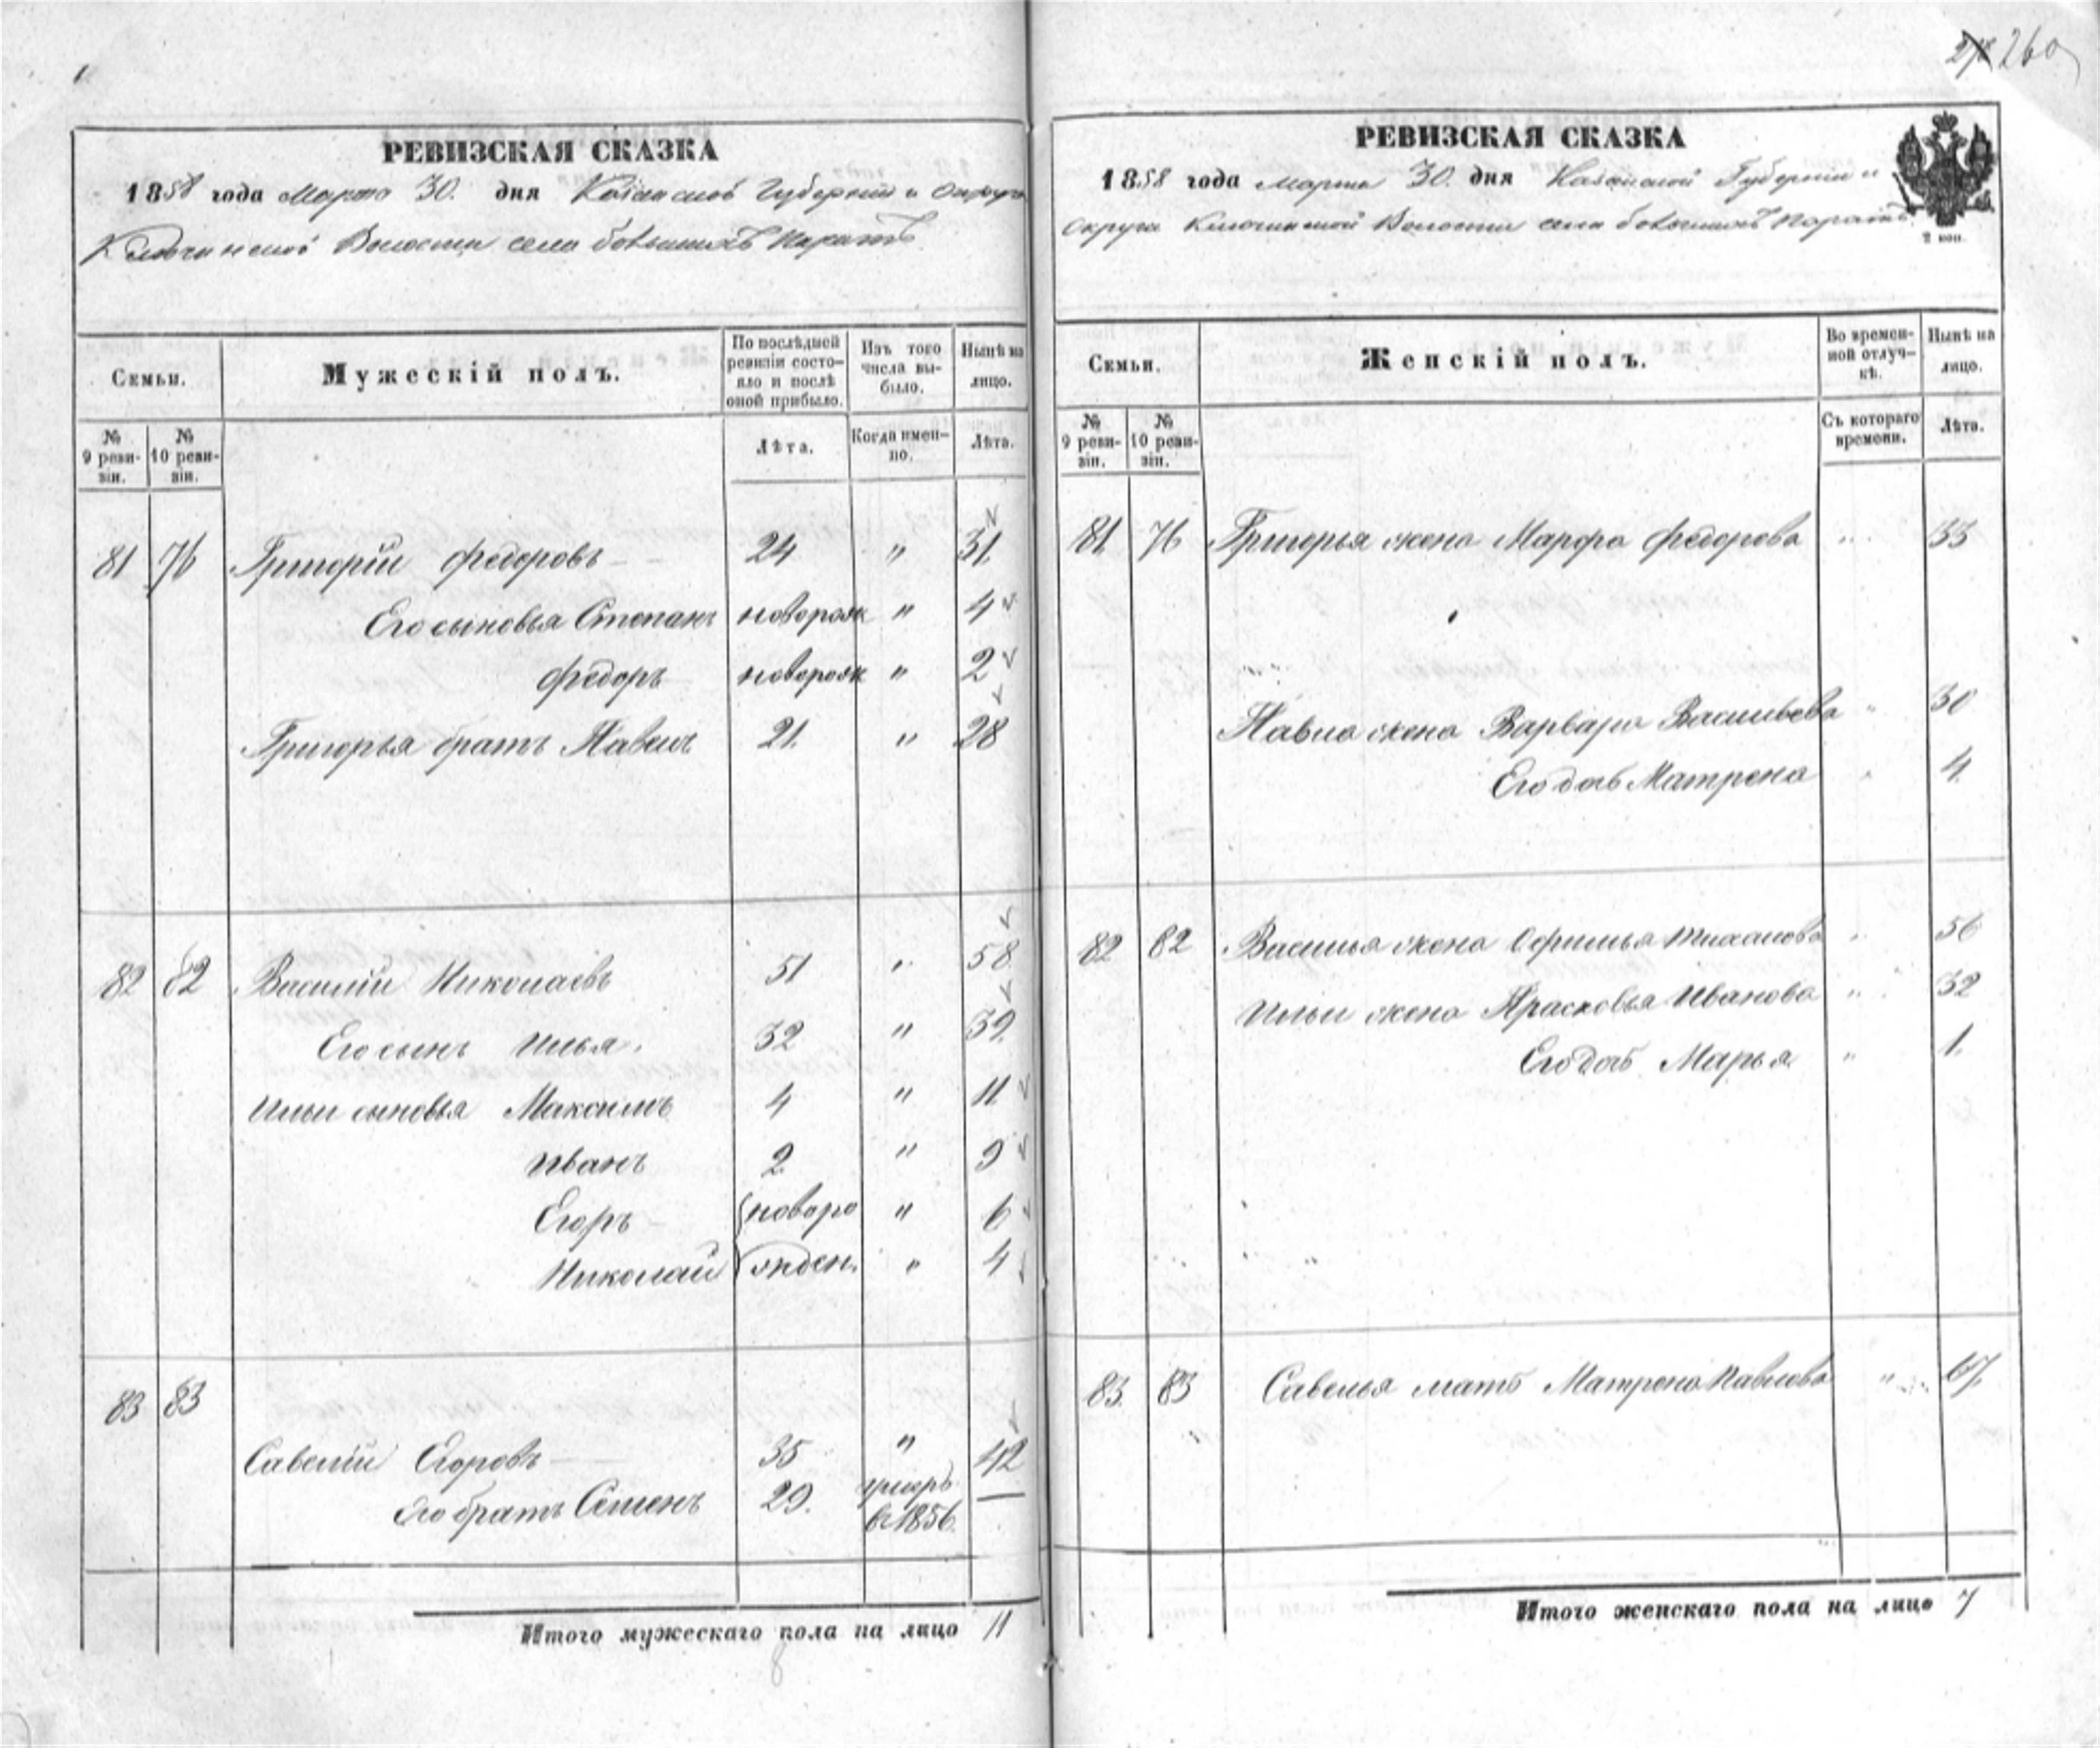 260
РЕВИЗСКАЯ СКАЗКА
1858 года Марта 30. дня Казанской Губернiи и Округа
Ключинской Волости села бовышихъ
РЕВИЗСКАЯ СКАЗКА
1858 года марта 30. дня Казанской Губернiи и
Округа Ключинской Волости села
2 коп.
Семьи.
Мужескiй полъ.
По послѣдней ревизiи состояло и послѣ оной прибыло.
Изъ того числа выбыло.
Нынѣ на лицо.
№ 9 ревизiи.
№ 10 ревизiи.
Лѣта.
Когда именно.
Лѣта.
81 76 Григорiй Федоровъ 24 " 31.
Его сыновья Степанъ еоворож " 4
Федоръ новорож " 2
Григорья братъ Павелъ 21. " 28
82 82 Василiй Николаевъ 51 " 58
Его сынъ Илья. 32 " 39
Ильи сыновья Максимъ 4 " 11
Иванъ 2 " 9
Егоръ новоро " 6
Николай жден. " 4
83 83
Савелiй Егоровъ 35 " 42
Его братъ Семенъ 29. умеръ —
в 1856.
Итого мужескаго пола на лицо 11
8
Семьи.
Женскiй полъ.
Во временной отлучкѣ.
Нынѣ на лицо.
№ 9 ревизiи.
№ 10 ревизiи.
Съ котораго времени.
Лѣта.
81 76 Григорья жена Марфа Федорова " 33
Павла жена Варвара Васильева " 30
Его дочь Матрена " 4
82 82 Василья жена Офимья " 56
Ильи жена Прасковья Иванова " 32
Его дочь Марья " 1.
83. 83 Савелья мать Матрена Павлова " 67.
Итого женскаго пола на лицо 7